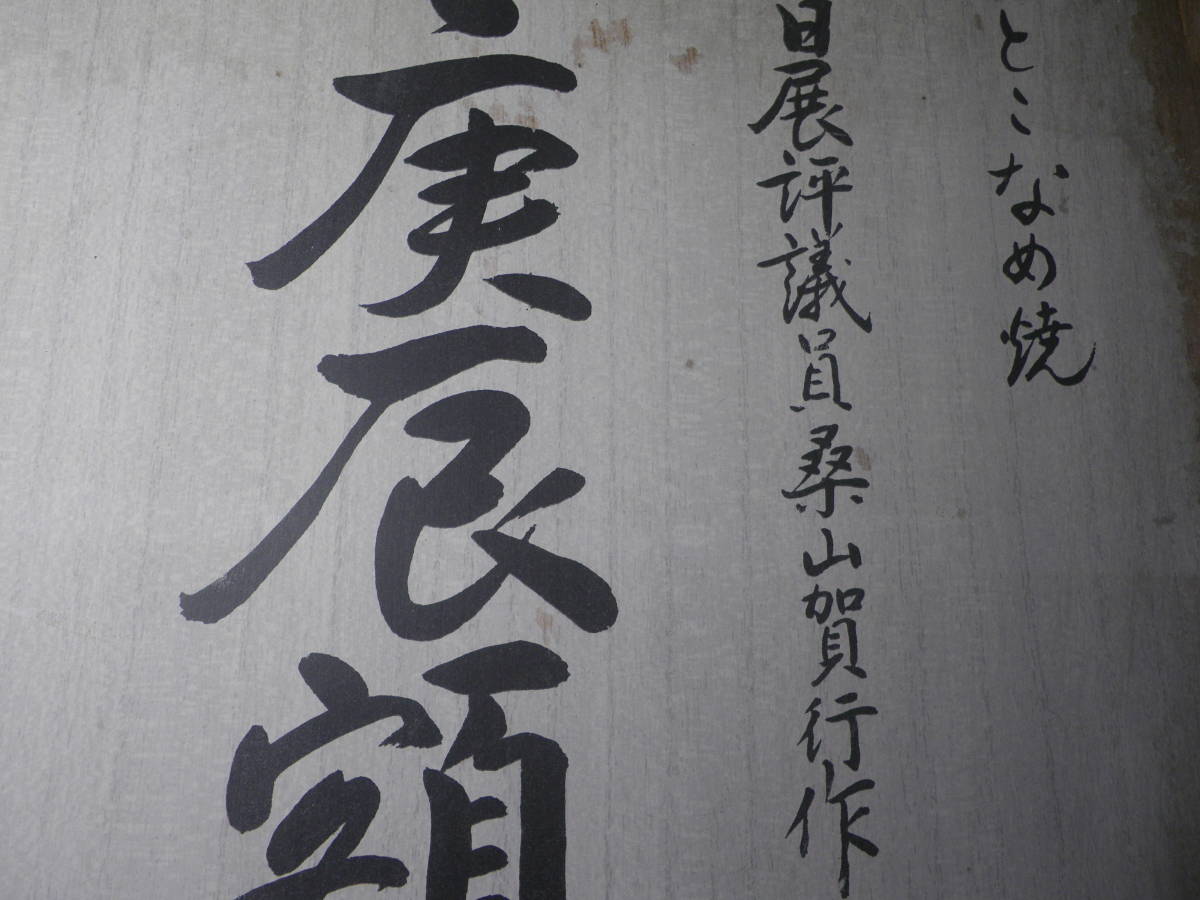 とこなめ焼
日展評議員桑山賀行作
庚辰額